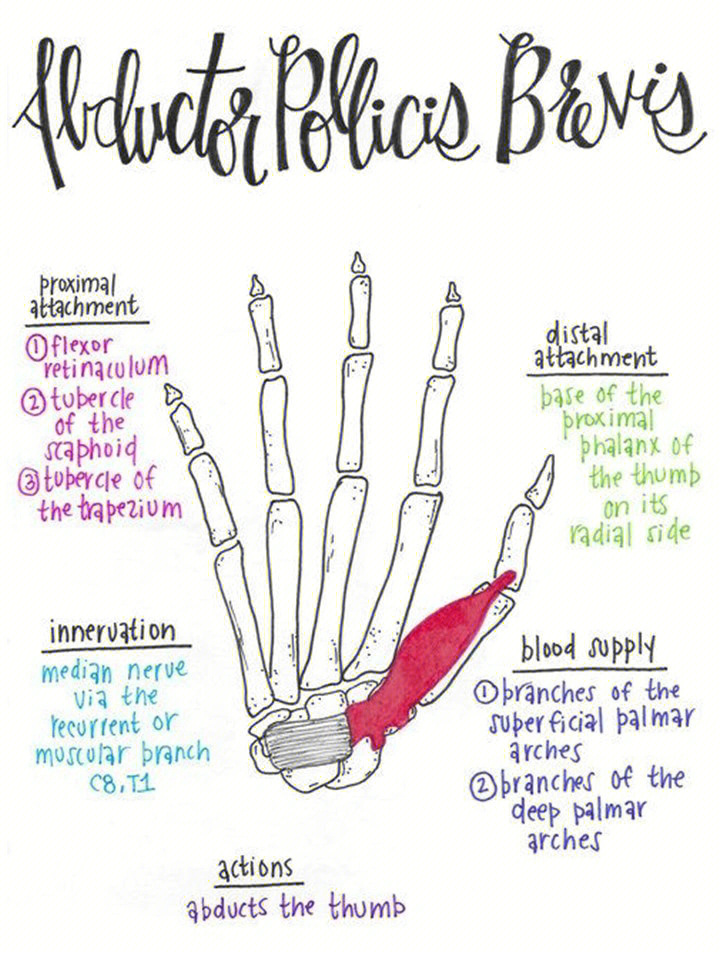 Abductor Pollicis Brevis
proximal
attachment
① flexor
retinaculum
② tubercle
of the
scaphoid
③ tubercle of
the trapezium
distal
attachment
base of the
proximal
phalanx of
the thumb
on its
radial side
innervation
median nerve
via the
recurrent or
muscular branch
C8, T1
blood supply
① branches of the
superficial palmar
arches
② branches of the
deep palmar
arches
actions
abducts the thumb